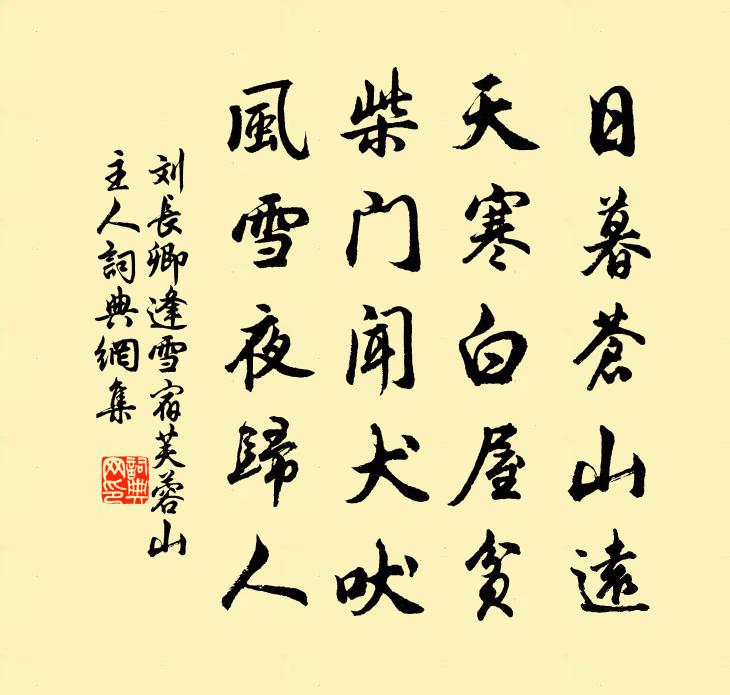 日暮蒼山遠
天寒白屋貧
柴门闻犬吠
風雪夜歸人
刘長卿逢雪宿芙蓉山
主人詞典網集
詞典
网印